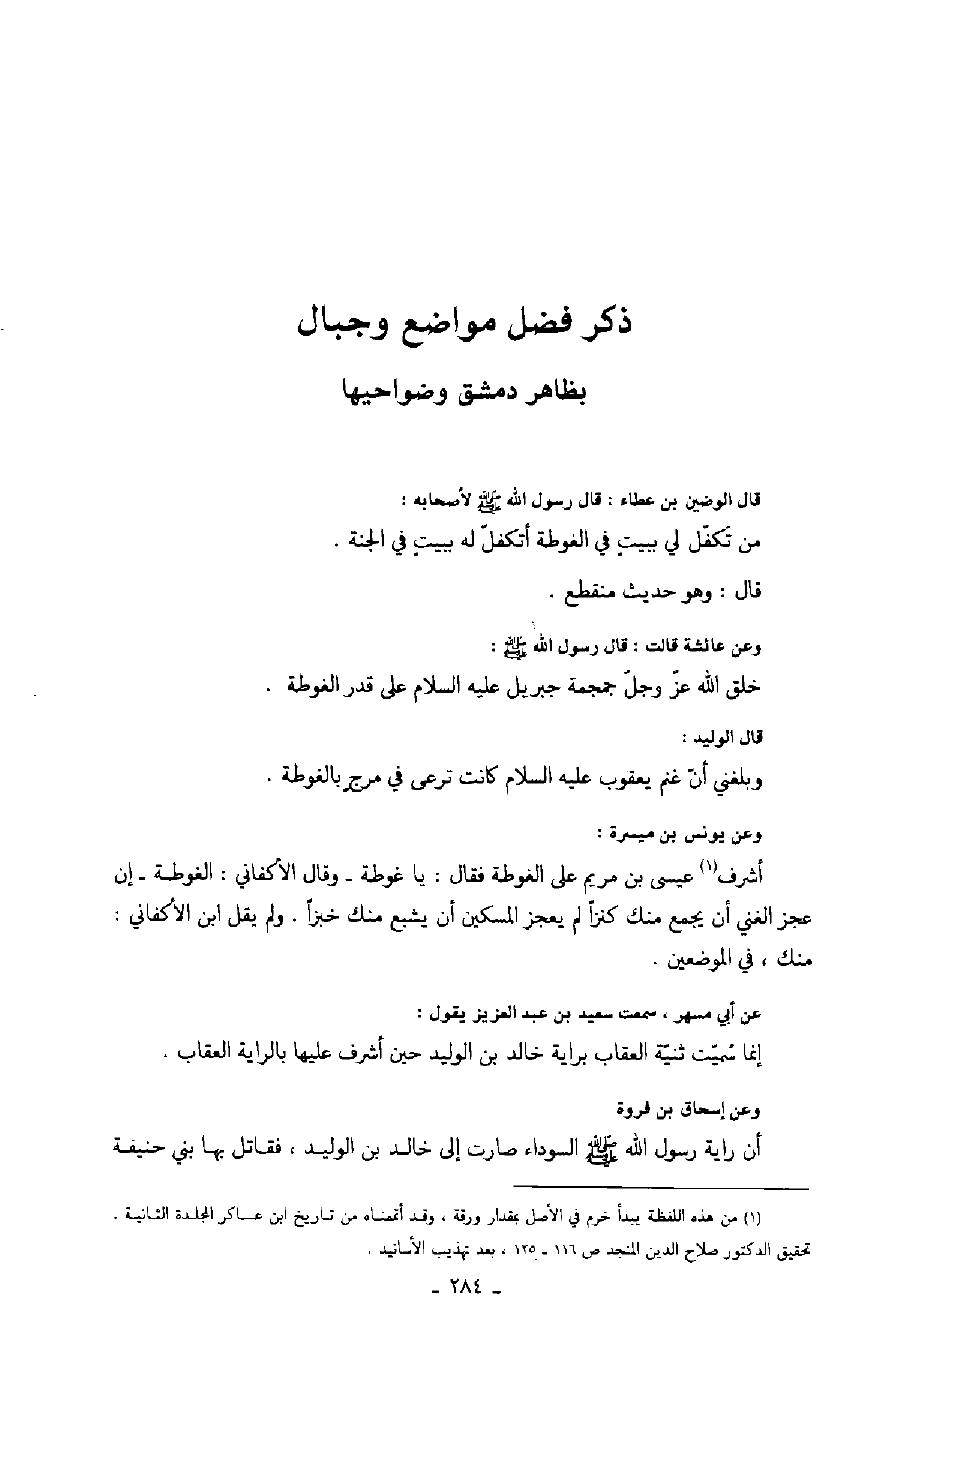 ذكر فضل مواضع وجبال
بظاهر دمشق وضواحيها
قال الوضين بن عطاء : قال رسول الله ﷺ لأصحابه :
من تكفّل لي ببيتٍ في الغوطة أتكفلّ له ببيتٍ في الجنة .
قال : وهو حديث منقطع .
وعن عائشة قالت : قال رسول الله ﷺ :
خلق الله عزّ وجلّ جمجمة جبريل عليه السلام على قدر الغوطة .
قال الوليد :
وبلغني أنّ غنم يعقوب عليه السلام كانت ترعى في مرج بالغوطة .
وعن يونس بن ميسرة :
أشرف(١) عيسى بن مريم على الغوطة فقال : يا غوطة ـ وقال الأكفاني : الغوطة ـ إن
عجز الغني أن يجمع منك كنزاً لم يعجز المسكين أن يشبع منك خبزاً . ولم يقل ابن الأكفاني :
منك ، في الموضعين .
عن أبي مسهر ، سمعت سعيد بن عبد العزيز يقول :
إنما سُميّت ثنيّة العقاب براية خالد بن الوليد حين أشرف عليها بالراية العقاب .
وعن إسحاق بن فروة
أن راية رسول الله ﷺ السوداء صارت إلى خالد بن الوليد ، فقاتل بها بني حنيفة
(١) من هذه اللفظة يبدأ خرم في الأصل بمقدار ورقة ، وقد أتممناه من تاريخ ابن عساكر المجلدة الثانية .
تحقيق الدكتور صلاح الدين المنجد ص ١١٦ ـ ١٢٥ ، بعد تهذيب الأسانيد .
ـ ٢٨٤ ـ